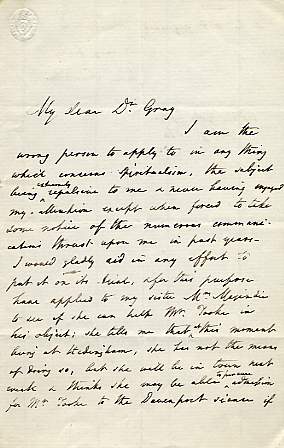 My dear Dr. Gray
I am the
wrong person to apply to in any thing
which concerns spiritualism, the subject
being extremely repulsive to me & never having engaged
my attention except when forced to take
some notice of the numerous communi-
cations thrust upon me in past years.
I would gladly aid in any effort to
put it on its trial, & for this purpose
have applied to my sister Mrs
to see if she can help Mr. Tooke in
his object; she tells me that at this moment
being at Hedingham, she has not the means
of doing so, but she will be in town next
week & thinks she may be able to procure admission
for Mr. Tooke to the Davenport séance if